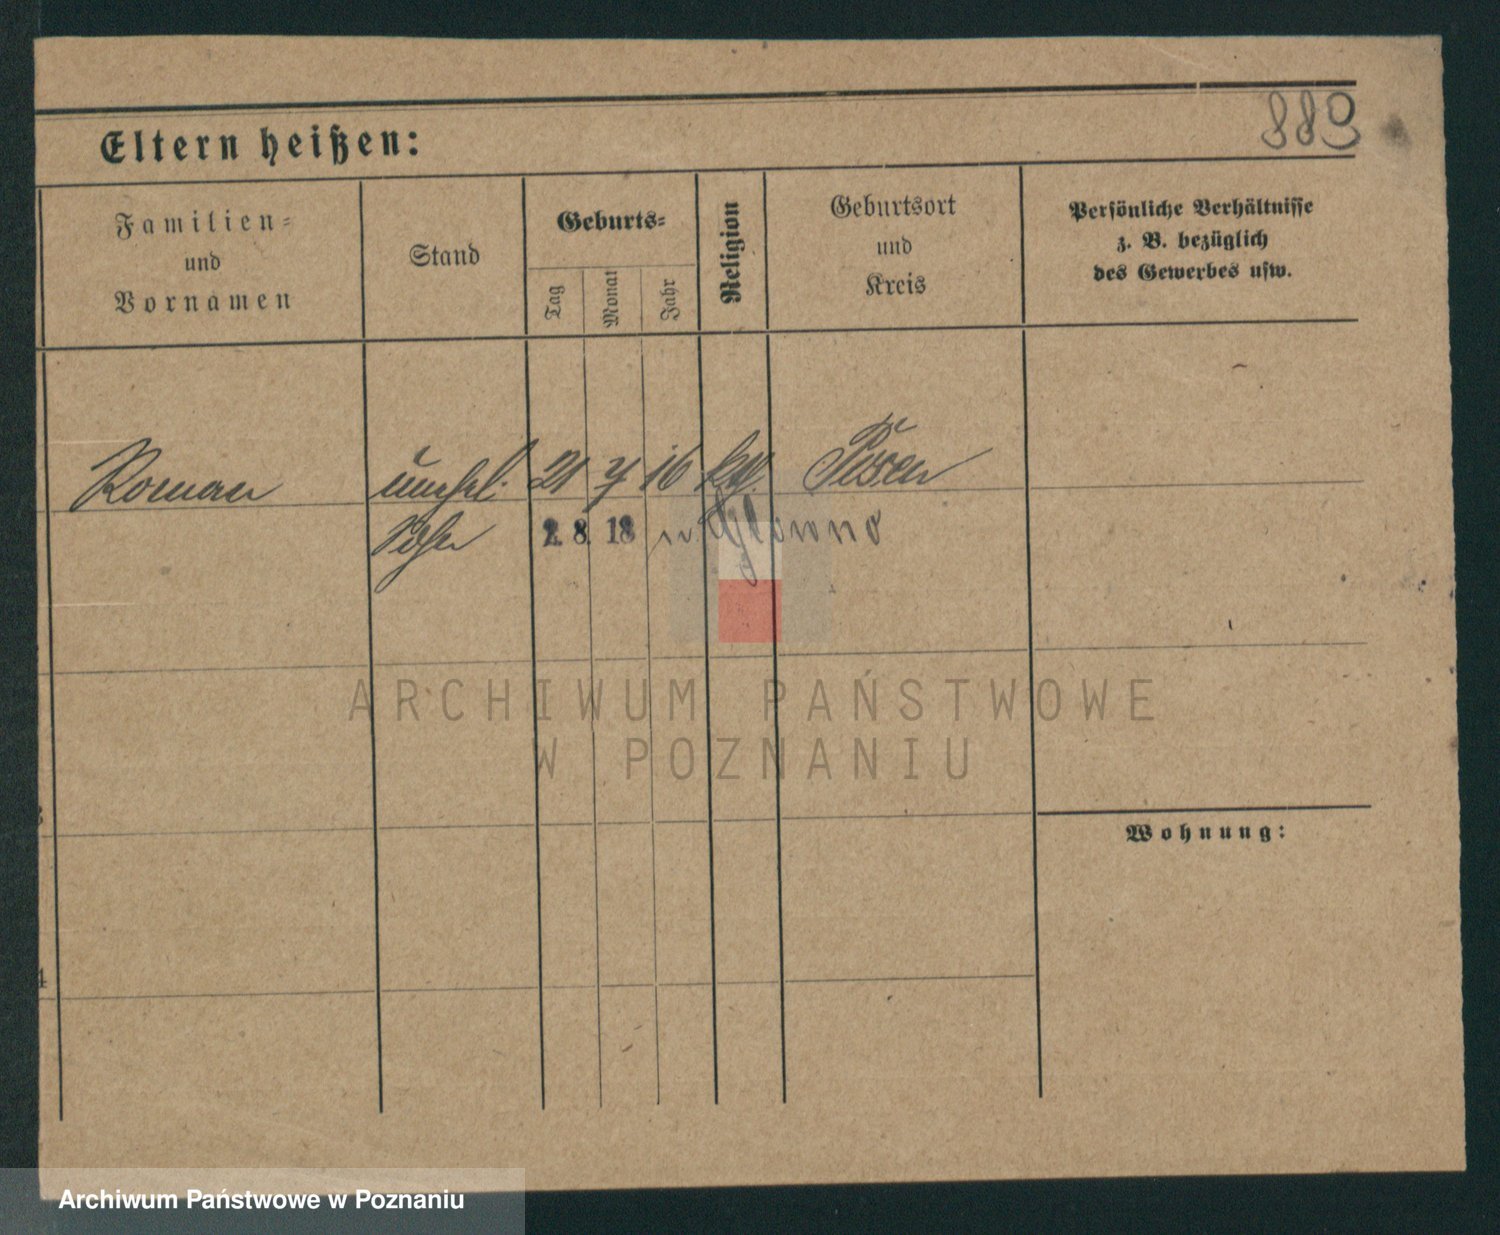 889
Eltern heißen:
Familien-
und
Vornamen
Stand
Geburts-
Tag
Monat
Jahr
Religion
Geburtsort
und
Kreis
Persönliche Verhältnisse
z. B. bezüglich
des Gewerbes usw.
Roman
unehl. 21 7 16 Posen
Sohn
2. 8. 18 n. Glowno
ARCHIWUM PAŃSTWOWE
W POZNANIU
Wohnung:
4
Archiwum Państwowe w Poznaniu